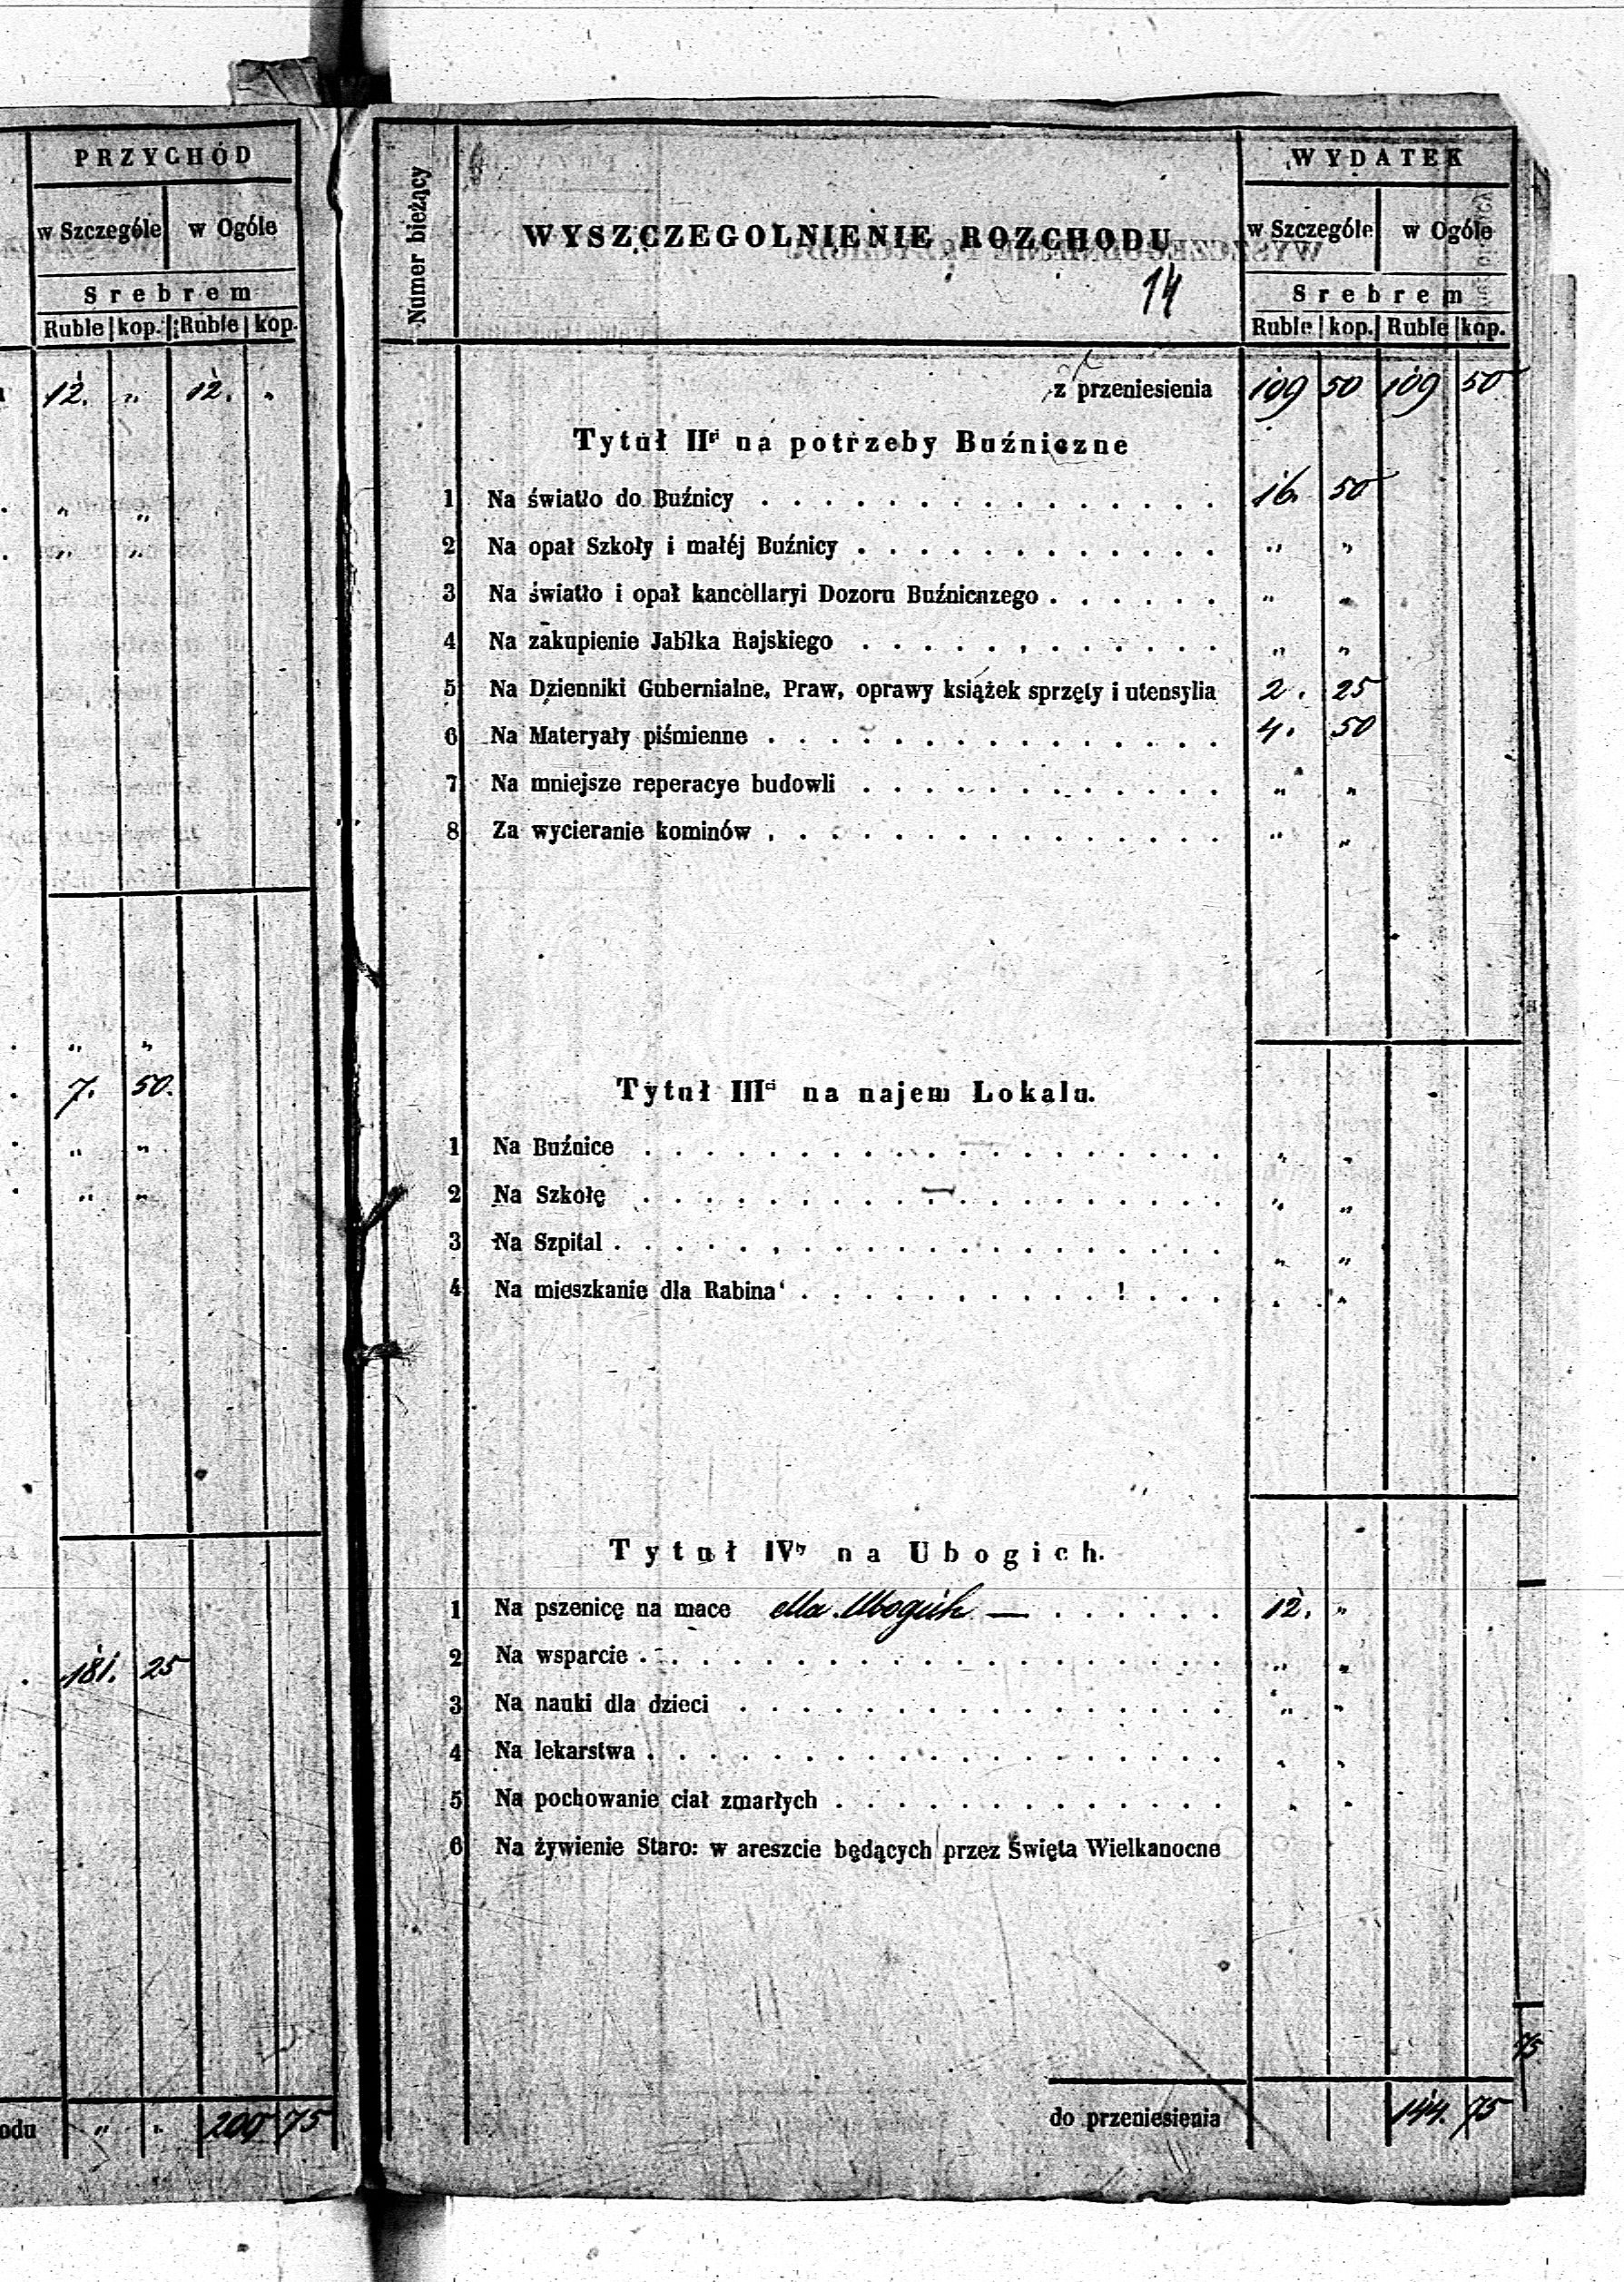 PRZYCHÓD
w Szczególe w Ogóle
Srebrem
Ruble kop. Ruble kop.
12. „ 12. „
„ „
„ „
„ „
7. 50.
„ „
„ „
181. 25
odu „ „ 200 75
Numer bieżący
WYSZCZEGOLNIENIE ROZCHODU
14
WYDATEK
w Szczególe w Ogóle
Srebrem
Ruble kop. Ruble kop.
z przeniesienia 109 50 109 50
Tytuł IIgi na potrzeby Buźniczne
1 Na światło do Buźnicy . . . . . . . . . . . . . . . 16. 50
2 Na opał Szkoły i małéj Buźnicy . . . . . . . . . . . . „ „
3 Na światło i opał kancellaryi Dozoru Buźnicnzego . . . . . . „ „
4 Na zakupienie Jabłka Rajskiego . . . . . . . . . . . . „ „
5 Na Dzienniki Gubernialne, Praw, oprawy książek sprzęty i utensylia 2. 25
6 Na Materyały piśmienne . . . . . . . . . . . . . . . 4. 50
7 Na mniejsze reperacye budowli . . . . . . . . . . . . „ „
8 Za wycieranie kominów . . . . . . . . . . . . . . . „ „
Tytuł IIIci na najem Lokalu.
1 Na Buźnice . . . . . . . . . . . . . . . . . . . „ „
2 Na Szkołę . . . . . . . . . . . . . . . . . . . „ „
3 Na Szpital . . . . . . . . . . . . . . . . . . . . „ „
4 Na mieszkanie dla Rabina . . . . . . . . . . . . . . „ „
Tytuł IVty na Ubogich.
1 Na pszenicę na mace dla Ubogich — . . . . . . 12. „
2 Na wsparcie . . . . . . . . . . . . . . . . . . . „ „
3 Na nauki dla dzieci . . . . . . . . . . . . . . . . „ „
4 Na lekarstwa . . . . . . . . . . . . . . . . . . . „ „
5 Na pochowanie ciał zmarłych . . . . . . . . . . . . . „ „
6 Na żywienie Staro: w areszcie będących przez Święta Wielkanocne
75
do przeniesienia 144. 75